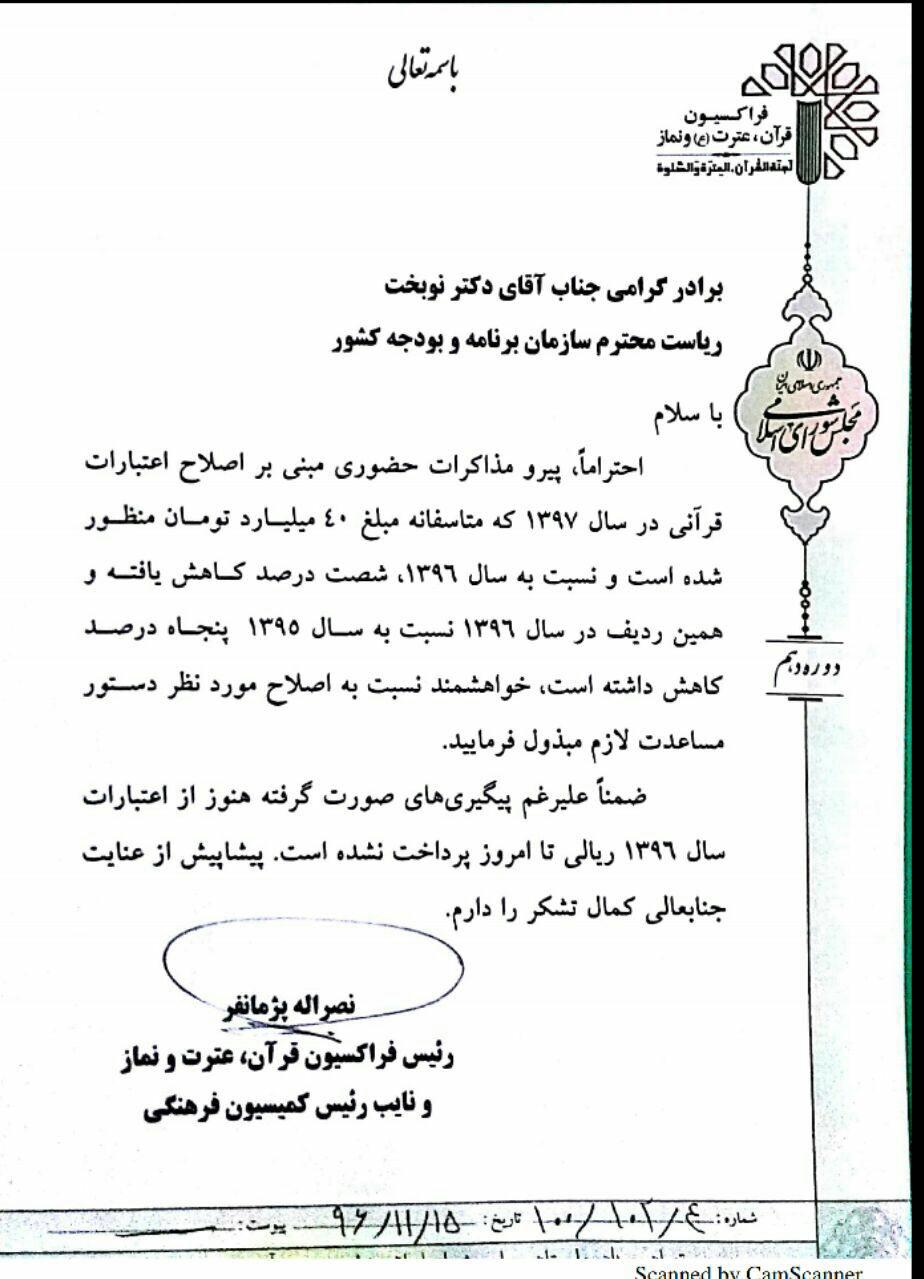 باسمه تعالی
فراکسیون
قرآن، عترت (ع) و نماز
لجنة القرآن، العترة والصلوة
برادر گرامی جناب آقای دکتر نوبخت
ریاست محترم سازمان برنامه و بودجه کشور
جمهوری اسلامی ایران
مجلس شورای اسلامی
با سلام
احتراماً، پیرو مذاکرات حضوری مبنی بر اصلاح اعتبارات
قرآنی در سال ۱۳۹۷ که متاسفانه مبلغ ۴۰ میلیارد تومان منظور
شده است و نسبت به سال ۱۳۹۶، شصت درصد کاهش یافته و
همین ردیف در سال ۱۳۹۶ نسبت به سال ۱۳۹۵ پنجاه درصد
کاهش داشته است، خواهشمند نسبت به اصلاح مورد نظر دستور
مساعدت لازم مبذول فرمایید.
دوره دهم
ضمناً علیرغم پیگیری‌های صورت گرفته هنوز از اعتبارات
سال ۱۳۹۶ ریالی تا امروز پرداخت نشده است. پیشاپیش از عنایت
جنابعالی کمال تشکر را دارم.
نصراله پژمانفر
رئیس فراکسیون قرآن، عترت و نماز
و نایب رئیس کمیسیون فرهنگی
شماره: ۱۰۰/۱۰۲/ع تاریخ: ۹۶/۱۱/۱۵ پیوست:
Scanned by CamScanner